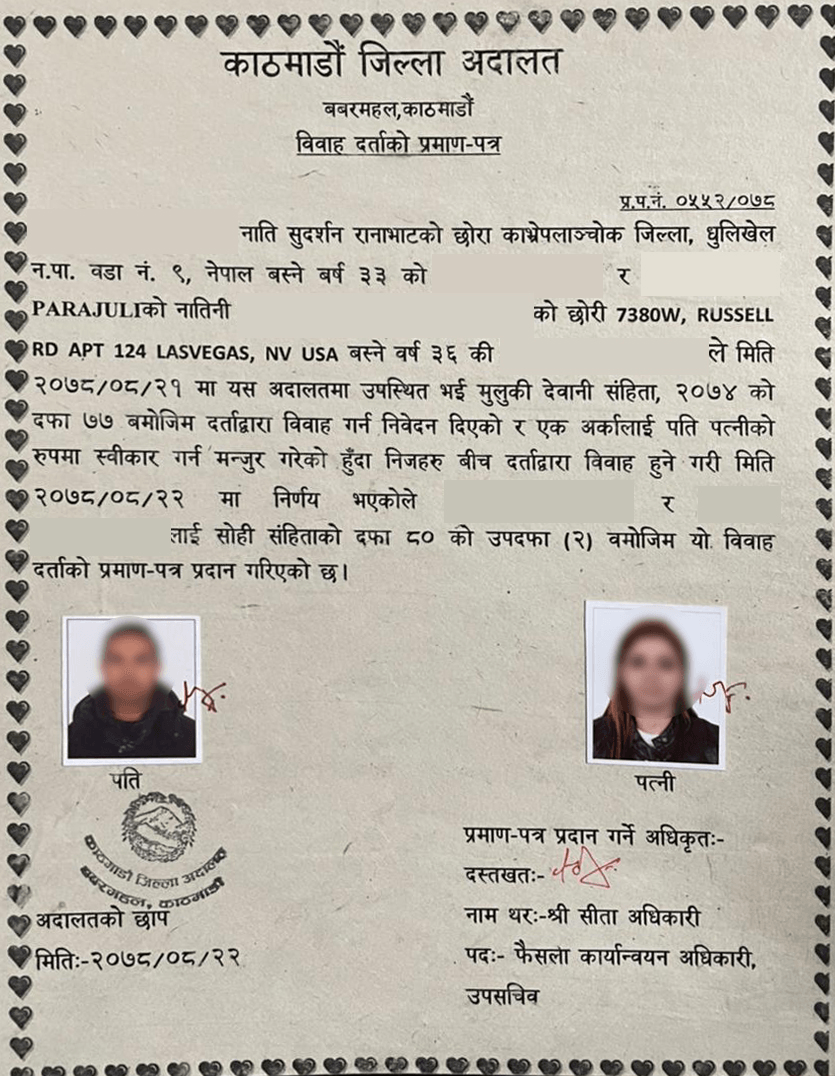 काठमाडौं जिल्ला अदालत
बबरमहल,काठमाडौं
विवाह दर्ताको प्रमाण-पत्र
प्र.प.नं. ०५५२/०७८
नाति सुदर्शन रानाभाटको छोरा काभ्रेपलाञ्चोक जिल्ला, धुलिखेल
न.पा. वडा नं. ९, नेपाल बस्ने बर्ष ३३ को र
PARAJULIको नातिनी को छोरी 7380W, RUSSELL
RD APT 124 LASVEGAS, NV USA बस्ने वर्ष ३६ की ले मिति
२०७८/०८/२१ मा यस अदालतमा उपस्थित भई मुलुकी देवानी संहिता, २०७४ को
दफा ७७ बमोजिम दर्ताद्वारा विवाह गर्न निवेदन दिएको र एक अर्कालाई पति पत्नीको
रुपमा स्वीकार गर्न मन्जुर गरेको हुँदा निजहरु बीच दर्ताद्वारा विवाह हुने गरी मिति
२०७८/०८/२२ मा निर्णय भएकोले र
लाई सोही संहिताको दफा ८० को उपदफा (२) वमोजिम यो विवाह
दर्ताको प्रमाण-पत्र प्रदान गरिएको छ।
पति
पत्नी
काठमाडौं जिल्ला अदालत
बबरमहल, काठमाडौं
प्रमाण-पत्र प्रदान गर्ने अधिकृतः-
दस्तखतः-
अदालतको छाप
नाम थरः-श्री सीता अधिकारी
मितिः-२०७८/०८/२२
पदः- फैसला कार्यान्वयन अधिकारी,
उपसचिव